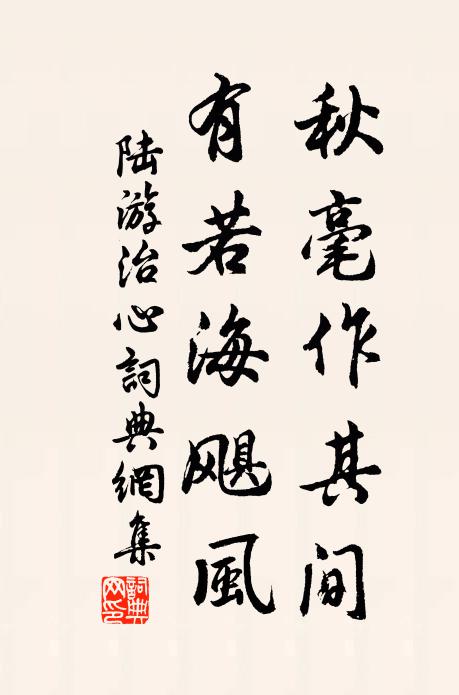 秋毫作其间
有若海飓風
陆游治心詞典網集
詞典網印